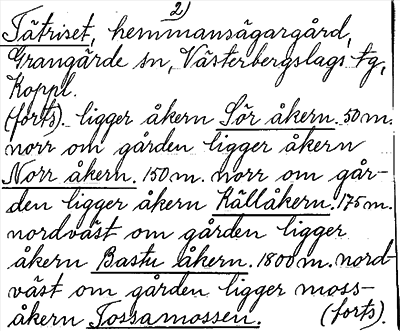 2)
Tätriset, hemmansägargård,
Grangärde sn, Västerbergslags tg,
Koppl.
(forts). ligger åkern Sör åkern. 50 m.
norr om gården ligger åkern
Norr åkern. 150 m. norr om går-
den ligger åkern Källåkern. 175 m.
nordväst om gården ligger
åkern Bastu åkern. 1800 m. nord-
väst om gården ligger moss-
åkern Tossamossen. (forts).